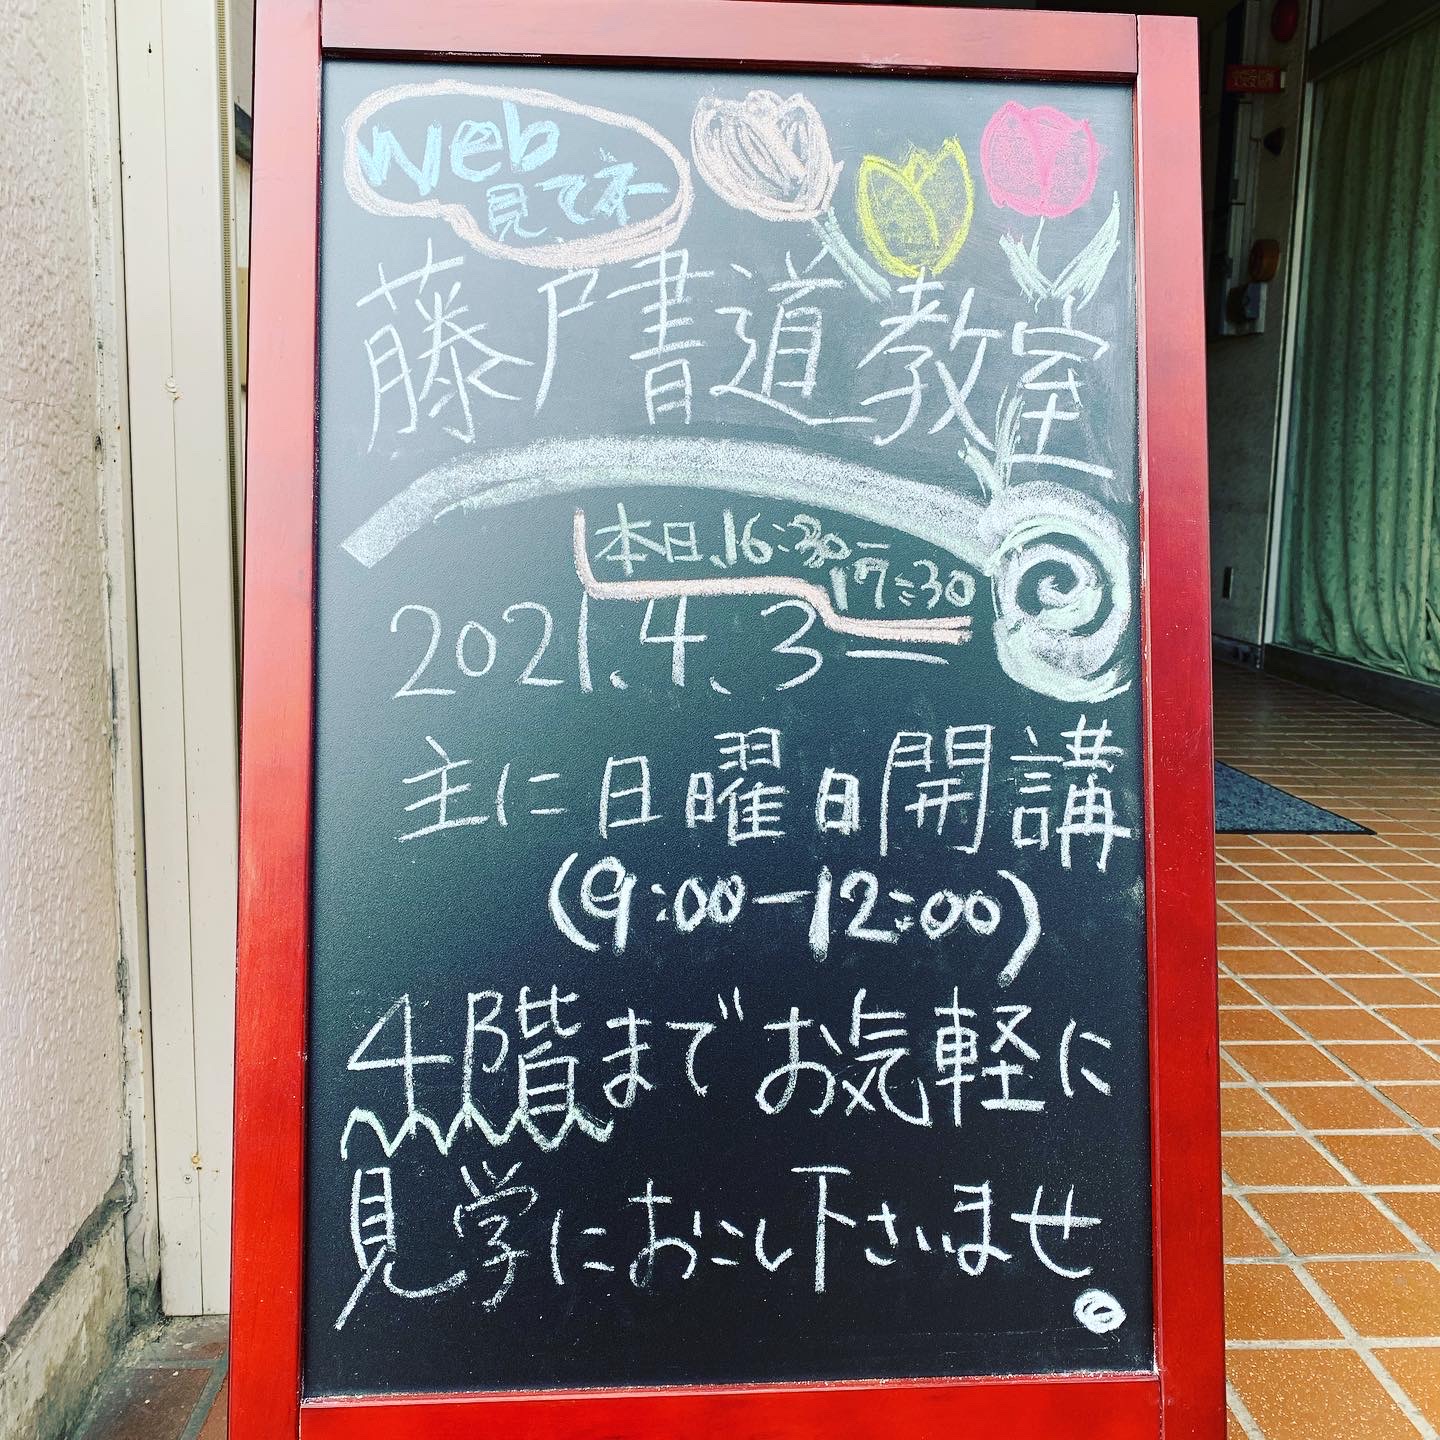 web
見てネ
藤戸書道教室
本日、16:30–
17:30
2021.4.3
主に日曜日開講
(9:00–12:00)
4階までお気軽に
見学におこし下さいませ。